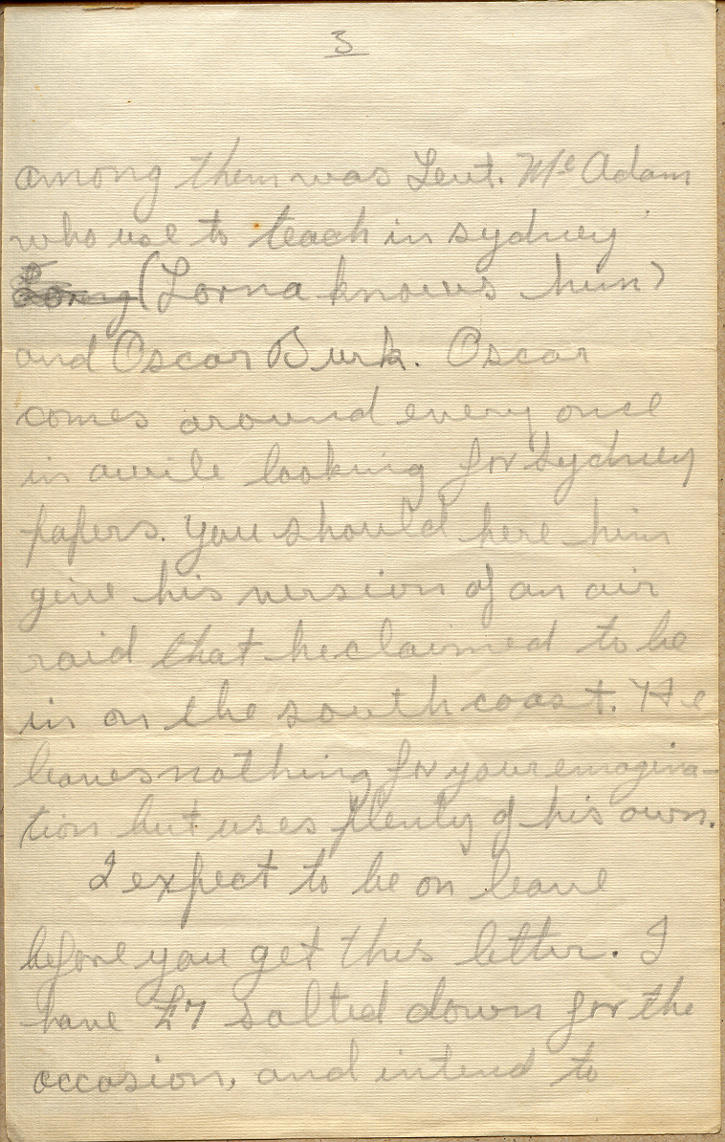 3
among them was Leut. Mc Adam
who use to teach in sydney
(Lorna knows him)
and Oscar Burk. Oscar
comes around every once
in awile looking for Sydney
papers. You should here him
give his version of an air
raid that he claimed to be
in on the south coast. He
leaves nothing for your emagina-
tion but uses plenty of his own.
I expect to be on leave
before you get this letter. I
have £7 salted down for the
occasion, and intend to